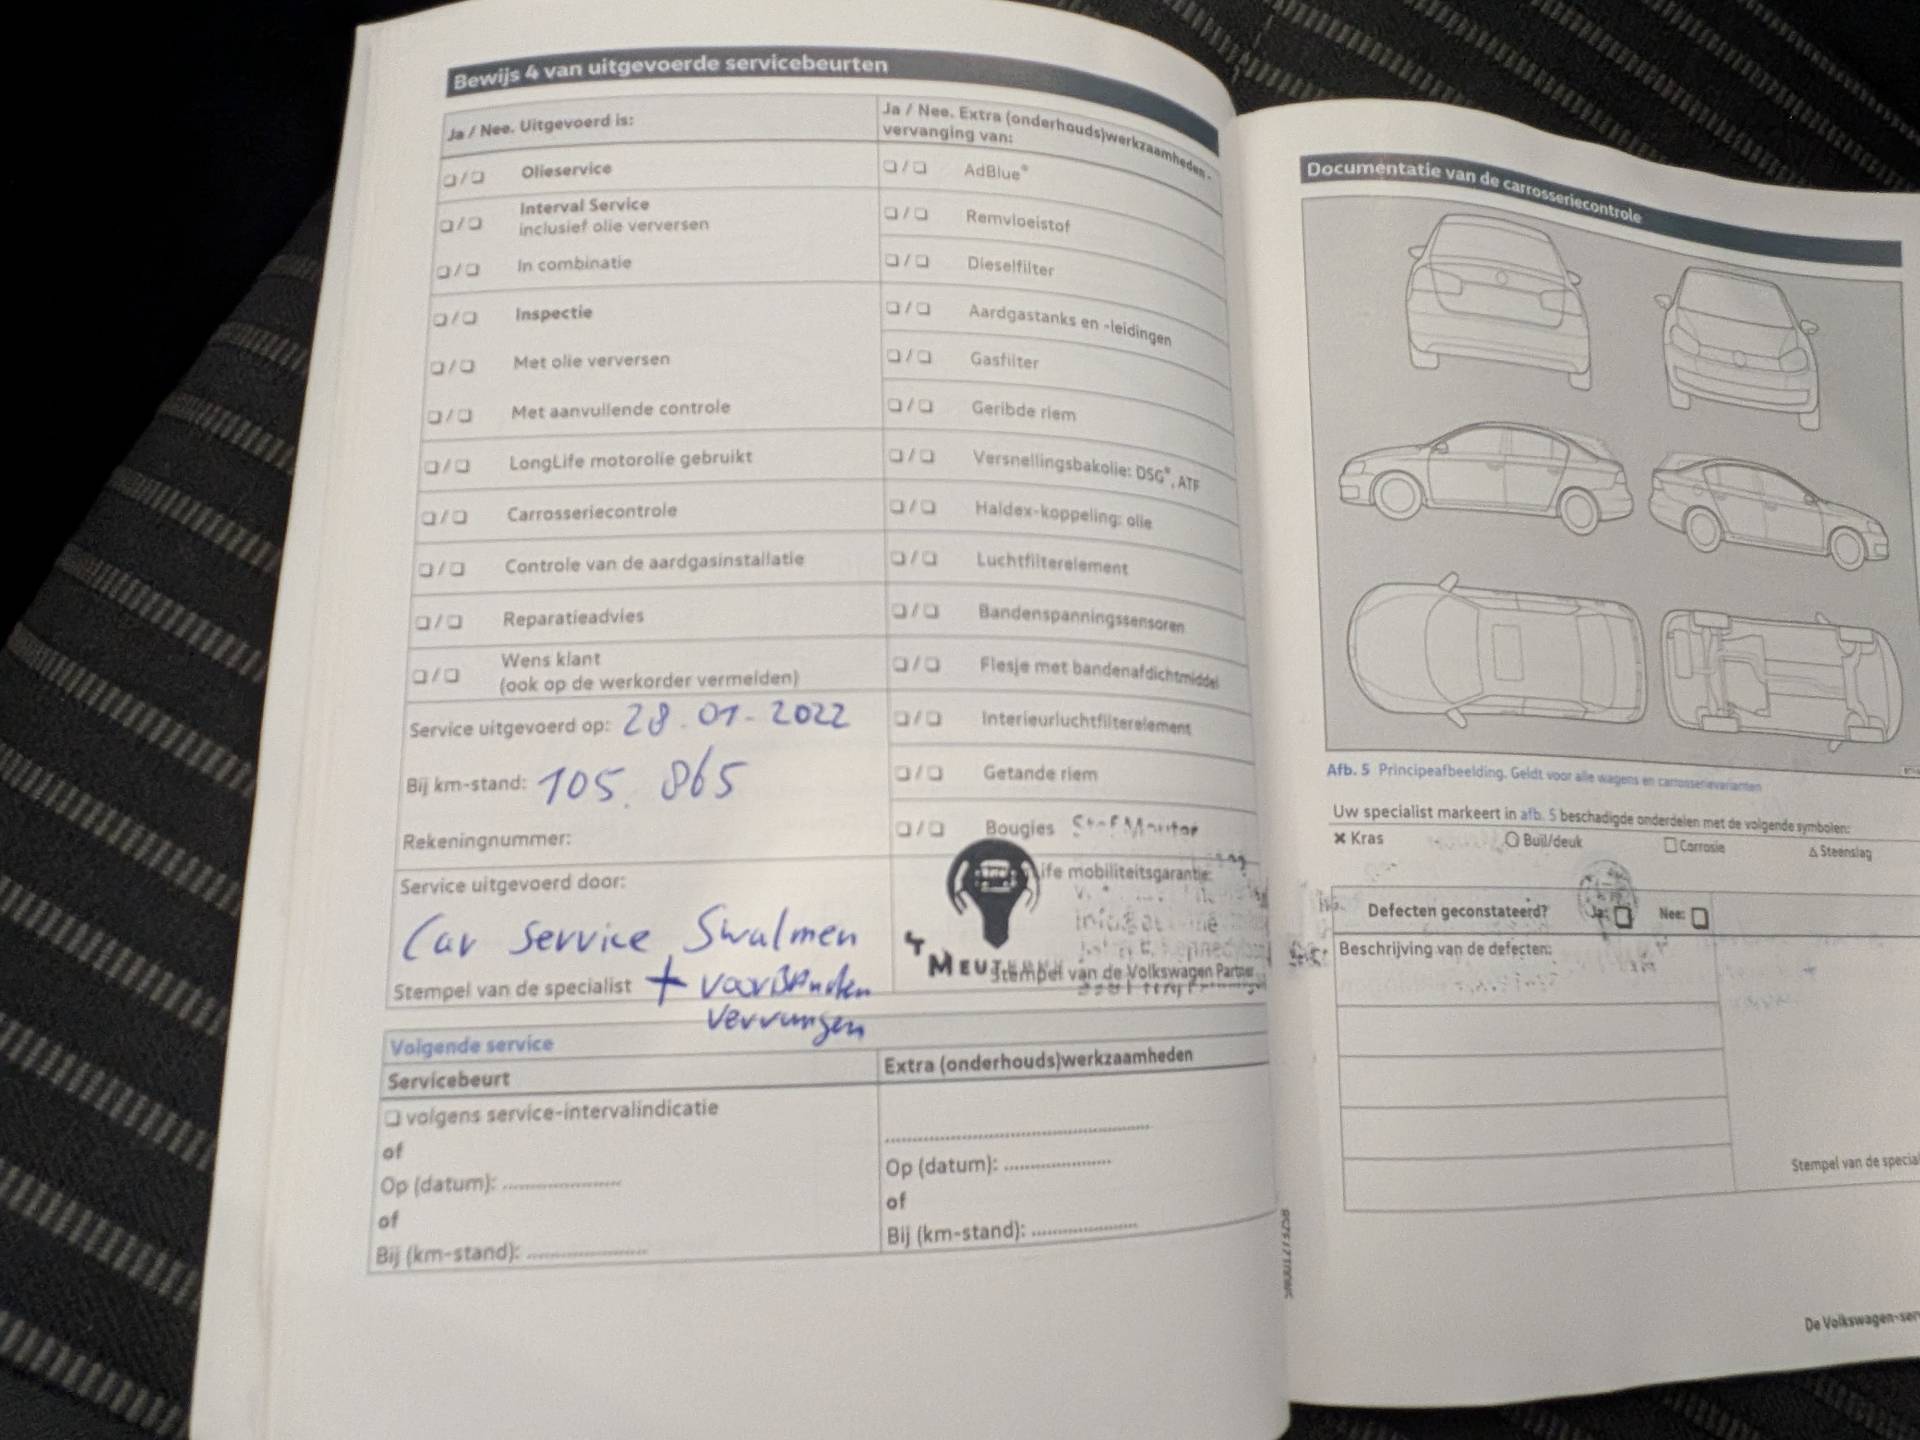 Bewijs 4 van uitgevoerde servicebeurten
Ja / Nee. Uitgevoerd is:
Olieservice
Interval Service
inclusief olie verversen
In combinatie
Inspectie
Met olie verversen
Met aanvullende controle
LongLife motorolie gebruikt
Carrosseriecontrole
Controle van de aardgasinstallatie
Reparatieadvies
Wens klant
(ook op de werkorder vermelden)
Service uitgevoerd op: 28-01-2022
Bij km-stand: 105.865
Rekeningnummer:
Service uitgevoerd door:
Car Service Swalmen
Stempel van de specialist +
Ja / Nee. Extra (onderhouds)werkzaamheden -
vervanging van:
AdBlue®
Remvloeistof
Dieselfilter
Aardgastanks en -leidingen
Gasfilter
Geribde riem
Versnellingsbakolie: DSG®, ATF
Haldex-koppeling: olie
Luchtfilterelement
Bandenspanningssensoren
Flesje met bandenafdichtmiddel
Interieurluchtfilterelement
Getande riem
Bougies
mobiliteitsgarantie:
Stempel van de Volkswagen Partner
Volgende service
Servicebeurt
volgens service-intervalindicatie
of
Op (datum):
of
Bij (km-stand):
Extra (onderhouds)werkzaamheden
Op (datum):
of
Bij (km-stand):
Documentatie van de carrosseriecontrole
Afb. 5 Principeafbeelding. Geldt voor alle wagens en carrosserievarianten
Uw specialist markeert in afb. 5 beschadigde onderdelen met de volgende symbolen:
Kras Buil/deuk Corrosie Steenslag
Defecten geconstateerd? Ja: Nee:
Beschrijving van de defecten:
Stempel van de special
De Volkswagen-ser